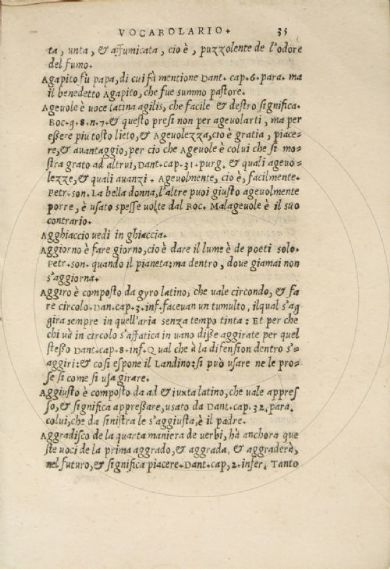 VOCABOLARIO. 35
ta, unta, & affumicata, cio è, puzzolente de l'odore
del fumo.
Agapito fù papa, di cui fà mentione Dant. cap. 6. para. ma
il benedetto Agapito, che fue summo pastore.
Ageuole è uoce latina agilis, che facile & destro significa.
Boc. 4. 8. n. 7. & questo presi non per ageuolarti, ma per
essere piu tosto lieto, & Ageuolezza, cio è gratia, piace-
re, & auantaggio, per cio che Ageuole è colui che si mo-
stra grato ad altrui, Dant. cap. 31. purg. & quali ageuo-
lezze, & quali auanzi. Ageuolmente, cio è, facilmente.
Petr. son. La bella donna, l'altre puoi giuso ageuolmente
porre, è usato spesse uolte dal Boc. Malageuole è il suo
contrario.
Agghiaccio uedi in ghiaccia.
Aggiorno è fare giorno, cio è dare il lume è de poeti solo.
Petr. son. quando il pianeta: ma dentro, doue giamai non
s'aggiorna.
Aggiro è composto da gyro latino, che uale circondo, & fa
re circolo. Dan. cap. 3. inf. faceuan un tumulto, il qual s'ag
gira sempre in quell'aria senza tempo tinta: Et per che
chi uà in circolo s'affatica in uano disse aggirate per quel
stesso Dant. cap. 8. inf. Qual che à la difension dentro s'-
aggiri: & cosi espone il Landino: si può usare ne le pro-
se si come si usa girare.
Aggiusto è composto da ad & iuxta latino, che uale appres
so, & significa appressare, usato da Dant. cap. 32. para.
colui, che da sinistra le s'aggiusta, è il padre.
Aggradisco de la quarta maniera de uerbi, hà anchora que
ste uoci de la prima aggrado, & aggrada, & aggraderà,
nel futuro, & significa piacere. Dant. cap, 2. infer. Tanto